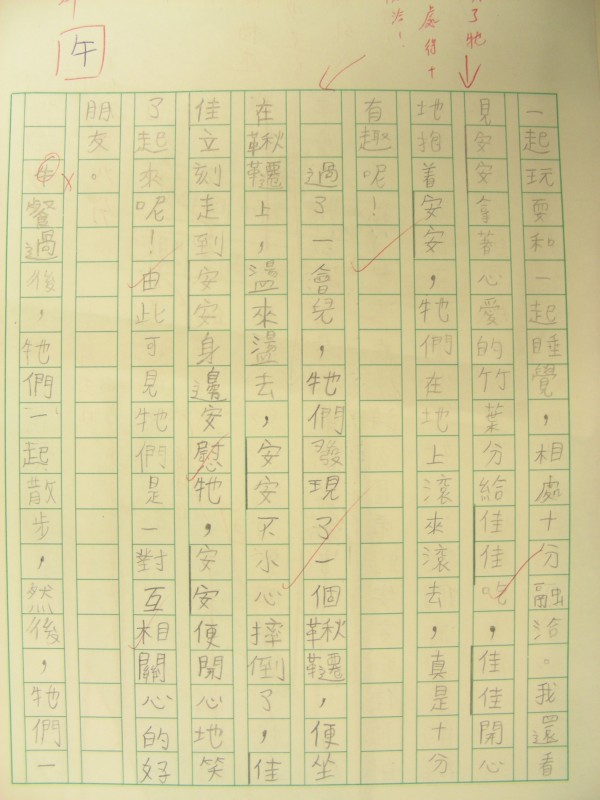 了牠
處得十
洽！
一起玩耍和一起睡覺，相處十分融洽。我還看
見安安拿著心愛的竹葉分給佳佳吃，佳佳開心
地抱着安安，牠們在地上滾來滾去，真是十分
有趣呢！
過了一會兒，牠們發現了一個鞦韆，便坐
在鞦韆上，盪來盪去，安安不小心摔倒了，佳
佳立刻走到安安身邊安慰牠，安安便開心地笑
了起來呢！由此可見牠們是一對互相關心的好
朋友。
午
牛餐過後，牠們一起散步，然後，牠們一